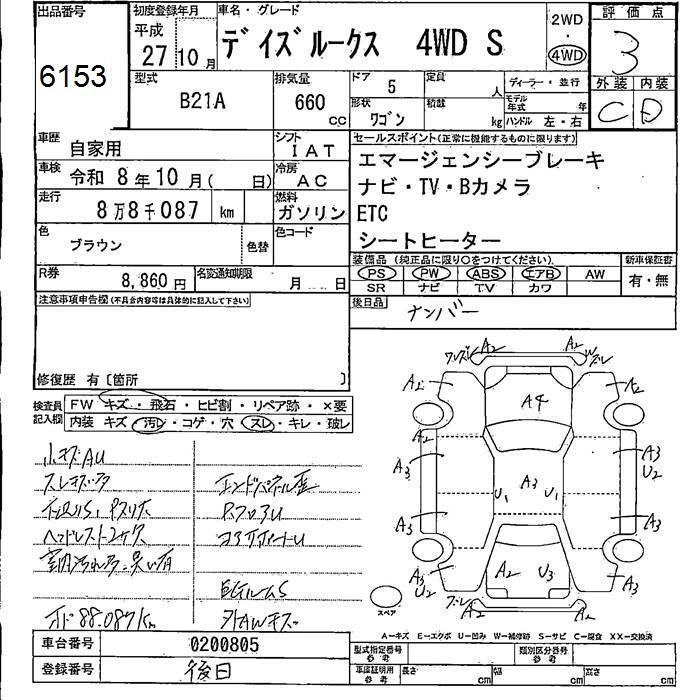 出品番号
6153
初度登録年月
平成
27 10 月
車名・グレード
デイズルークス 4WD S
2WD
・
4WD
評価点
3
外装 内装
C D
型式
B21A
排気量
660
cc
ドア
5
定員
人
ディーラー・並行
形状
ワゴン
積載
kg
モデル年式
年
ハンドル 左・右
車歴
自家用
シフト
IAT
車検
令和 8年10月( 日)
冷房
AC
走行
8万8千087 km
燃料
ガソリン
色
ブラウン
色替
色コード
R券
8,860 円
名変通知期限
月 日
セールスポイント(正常に機能するものに限ります)
エマージェンシーブレーキ
ナビ・TV・Bカメラ
ETC
シートヒーター
装備品 (純正品に限り○をつけてください)
PS PW ABS エアB AW
SR ナビ TV カワ
新車保証書
有・無
後日品
ナンバー
注意事項申告欄(不具合内容等は具体的に記入して下さい)
修復歴 有〔箇所 〕
検査員
記入欄
FW キズ・飛石・ヒビ割・リペア跡・×要
内装 キズ・汚レ・コゲ・穴・スレ・キレ・破レ
小キズAU
スレキズ多
ヘッドレスト
オド88.087Km
A2 A2
A2 A4 A2
A2
A3 A3
U2
U1 A3 U1
A3 A3
A3 A2 U3 A3
U2
A2 A2
スペア
A-キズ E-エクボ U-凹み W-補修跡 S-サビ C-腐食 XX-交換済
車台番号
0200805
登録番号
後日
型式指定番号
参考
類別区分番号
参考
車庫証明用
参考
長さ
cm
幅
cm
高さ
cm